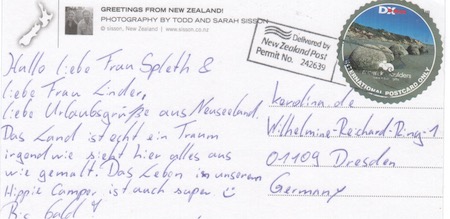 GREETINGS FROM NEW ZEALAND!
PHOTOGRAPHY BY TODD AND SARAH SISSON
© sisson, New Zealand | www.sisson.co.nz
Delivered by
New Zealand Post
Permit No. 242639
DX
INTERNATIONAL POSTCARD ONLY
Hallo liebe Frau Spleth &
liebe Frau Linder,
liebe Urlaubsgrüße aus Neuseeland.
Das Land ist echt ein Traum
irgendwie sieht hier alles aus
wie gemalt. Das Leben in unserem
Hippie Camper ist auch super
Bis bald
karolina.de
Wilhelmine-Reichard-Ring-1
01109 Dresden
Germany